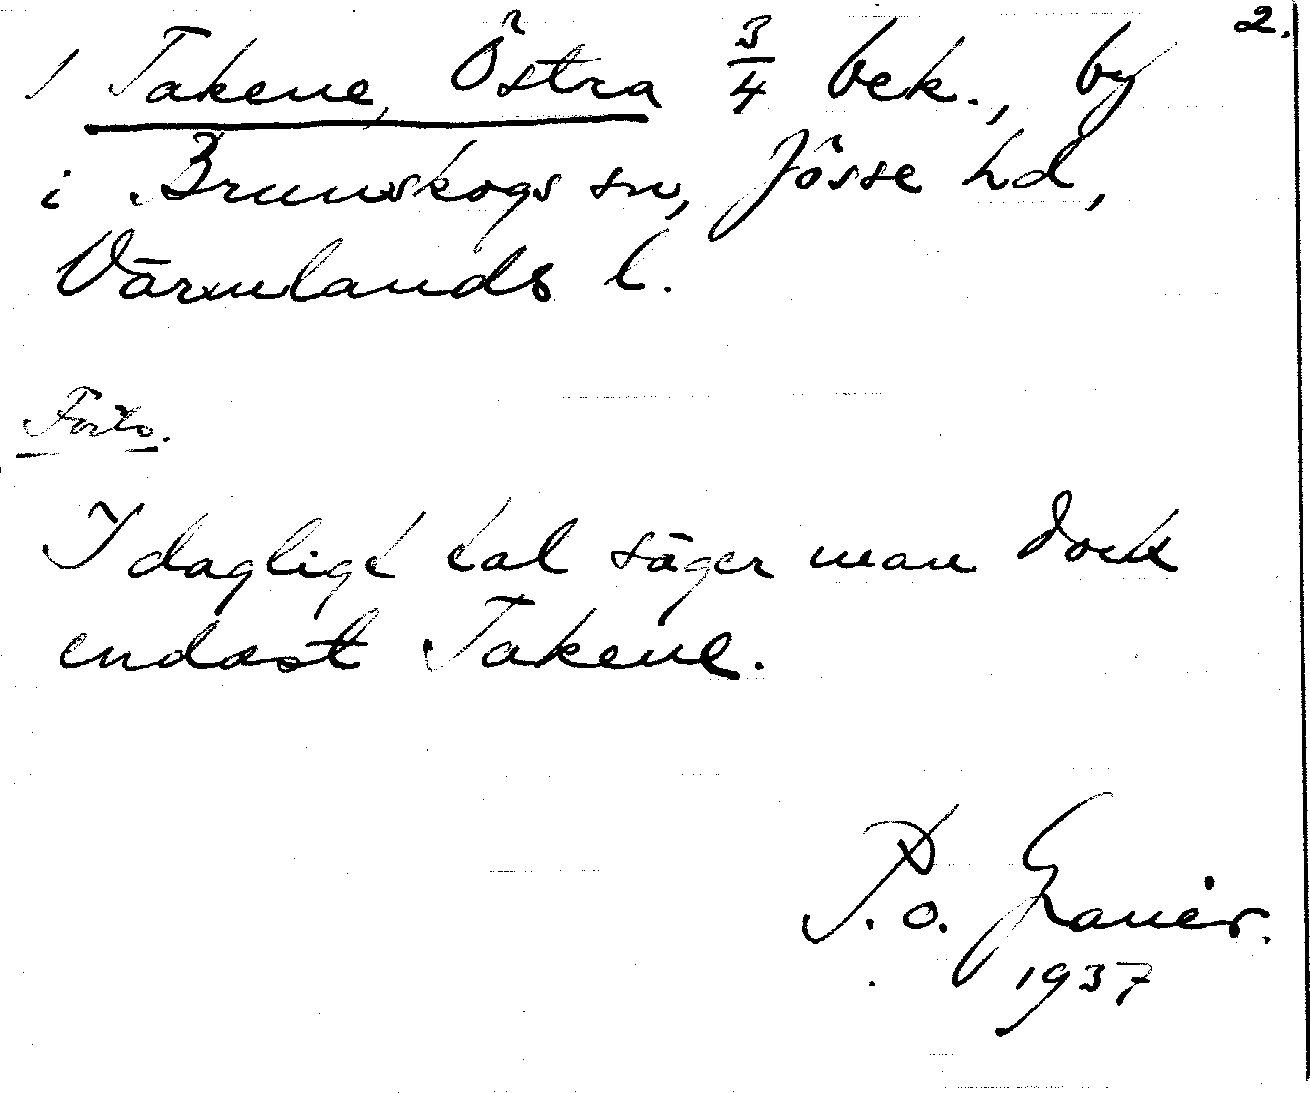 2.
/ Takene, Östra 3/4 bek., by
i Brunskogs sn, Jösse hd,
Värmlands l.
Forts.
I dagligt tal säger man dock
endast Takene.
P. O. Granér.
1937